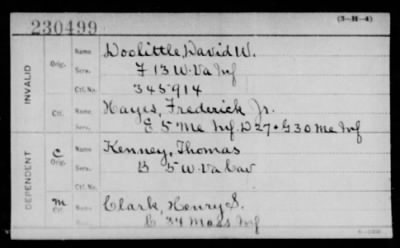 (3-H-4)
230499
INVALID
Orig.
Name
Doolittle, David W.
Serv.
F 13 W. Va Inf
Ctf. No.
345914
Ctf.
Name
Hayes, Frederick Jr.
Serv.
E 5 Me Inf. D 27 & G 30 Me Inf
DEPENDENT
C
Orig.
Name
Kenney, Thomas
Serv.
B 5 W. Va Cav
Ctf. No.
M
Ctf.
Name
Clark, Henry S.
Serv.
C 34 Mass Inf